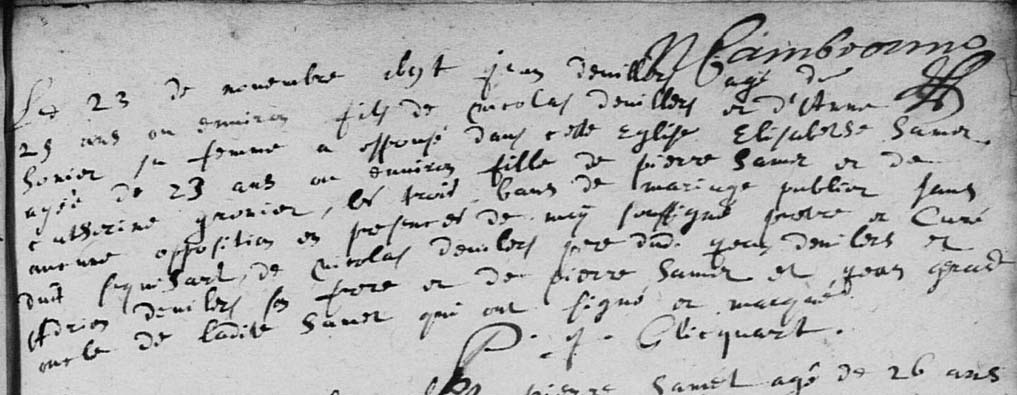 N Cambronne
Le 23 de novembre 1697 jean devillers agé de
25 ans ou environ fils de Nicolas devillers et d'Anne
sa femme a espousé dans cette Eglise Elisabethe Samer
agée de 23 ans ou environ fille de pierre Samer et de
Catherine gronier, les trois bans de mariage publiez sans
aucune opposition en presences de moy soussigné pretre et Curé
de Nicolas devilers pere dud. jean devilers et
Adrien devilers son frere et de pierre Samer et jean
oncle de ladite Samer qui ont signé et marqué.
P. J. Clicquart.
pierre Samer agé de 26 ans